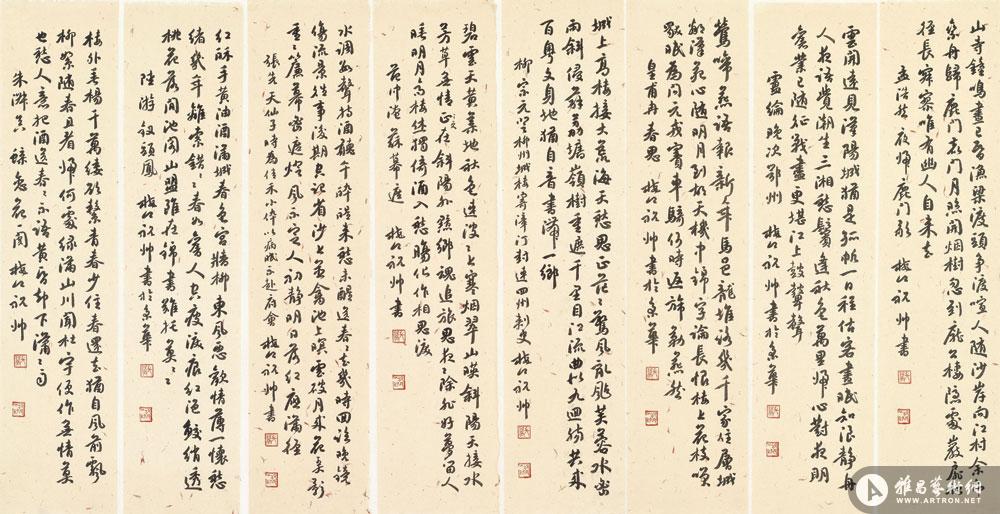 山寺鐘鳴晝已昏漁梁渡頭爭渡喧人隨沙岸向江村余亦
乘舟歸鹿門鹿門月照開煙樹忽到龐公棲隱處巖扉松
徑長寂寥唯有幽人自來去
孟浩然夜歸鹿門歌 祝帥書
雲開遠見漢陽城猶是孤帆一日程估客晝眠知浪靜舟
人夜語覺潮生三湘愁鬢逢秋色萬里歸心對月明
舊業已隨征戰盡更堪江上鼓鼙聲
盧綸晚次鄂州 祝帥書於京華
鶯啼燕語報新年馬邑龍堆路幾千家住層城
鄰漢苑心隨明月到胡天機中錦字論長恨樓上花枝笑
獨眠為問元戎竇車騎何時返旆勒燕然
皇甫冉春思 祝帥書於京華
城上高樓接大荒海天愁思正茫々驚風亂颭芙蓉水密
雨斜侵薜荔墻嶺樹重遮千里目江流曲似九迴腸共來
百粵文身地猶自音書滯一鄉
柳宗元登柳州城樓寄漳汀封連四州刺史 祝帥
碧雲天黃葉地秋色連波々上寒煙翠山映斜陽天接水
芳草無情正在斜陽外黯鄉魂追旅思夜々除非好夢留人
睡明月高樓休獨倚酒入愁腸化作相思淚
范仲淹蘇幕遮 祝帥書
水調數聲持酒聽午醉醒來愁未醒送春々去幾時回臨晚鏡
傷流景往事後期空記省沙上並禽池上暝雲破月來花弄影
重々簾幕密遮燈風不定人初靜明日落紅應滿徑
張先天仙子時為嘉禾小倅以病眠不赴府會 祝帥書
紅酥手黃酒滿城春色宮牆柳東風惡歡情薄一懷愁
緒幾年離索錯々々春如舊人空瘦淚痕紅浥鮫綃透
桃花落閒池閣山盟雖在錦書難托莫々々
陸游釵頭鳳 祝帥書於京華
樓外垂楊千萬縷欲繫青春少住春還去猶自風前飄
柳絮隨春且看歸何處綠滿山川聞杜宇便作無情莫
也愁人意把酒送春々不語黃昏卻下瀟々雨
朱淑真蝶戀花 祝帥
雅昌藝術網
WWW.ARTRON.NET